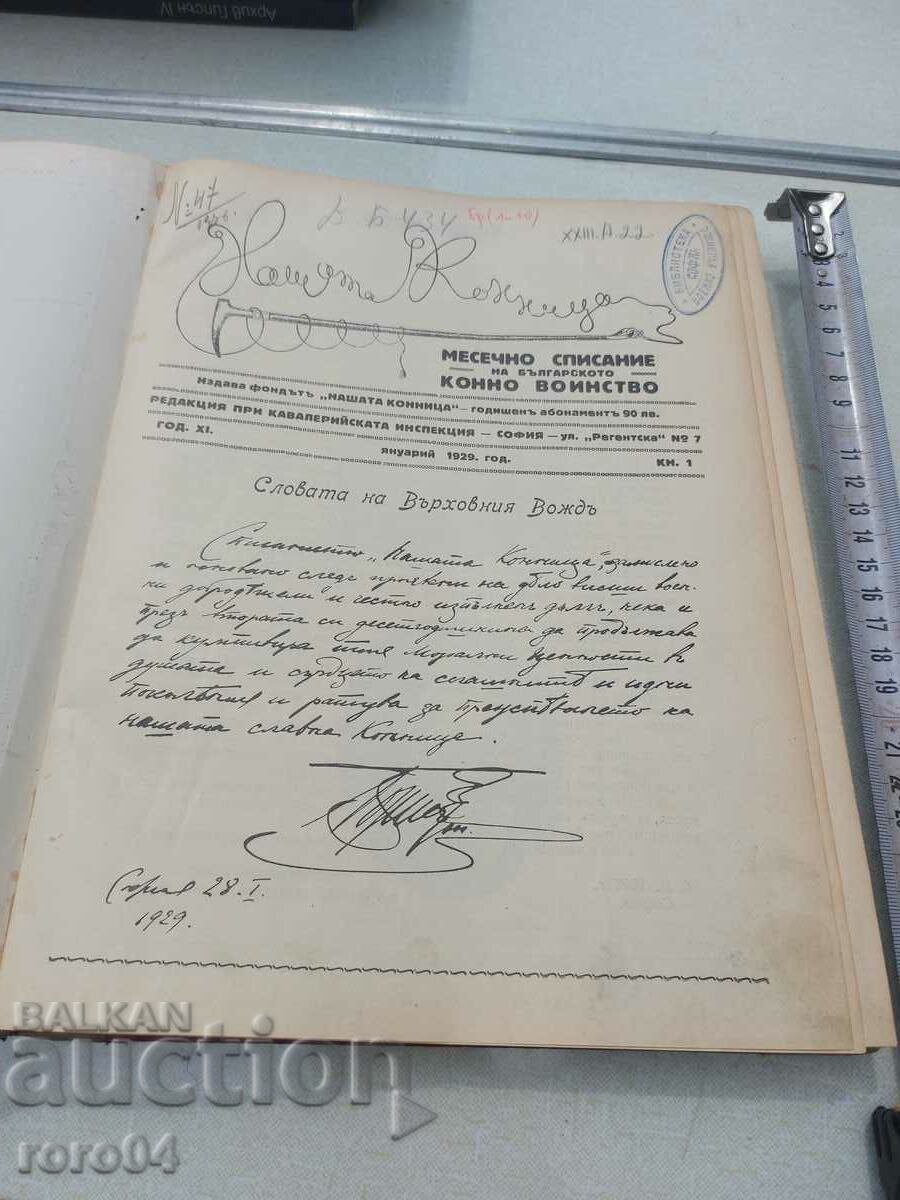 Архив Гипсън IV
№ 47
Б Б 434 Бр(1-10)
XXIII.А.22
БИБЛИОТЕКА
СОФИЯ
Нашата Конница
МЕСЕЧНО СПИСАНИЕ
НА БЪЛГАРСКОТО
КОННО ВОИНСТВО
Издава фондътъ „НАШАТА КОННИЦА“ – годишенъ абонаментъ 90 лв.
РЕДАКЦИЯ ПРИ КАВАЛЕРИЙСКАТА ИНСПЕКЦИЯ – СОФИЯ – ул. „Регентска“ № 7
ГОД. XI. Януарий 1929. год. КН. 1
Словата на Върховния Вождъ
Списанието „Нашата Конница“, замислено
и основано следъ присъщи на дѣло висши воен-
ни добродѣтели и честно изпълненъ дългъ, нека и
презъ втората си десетгодишнина да продължава
да култивира тия морални ценности въ
душата и сърдцето на сегашнитѣ и идни
поколѣния и ратува за преуспѣването на
нашата славна Конница.
София 28.I.
1929.
3 4 5 6 7 8 9 11 12 13 14 15 16 17 18 19 21 22 23
BALKAN
auction
roro04